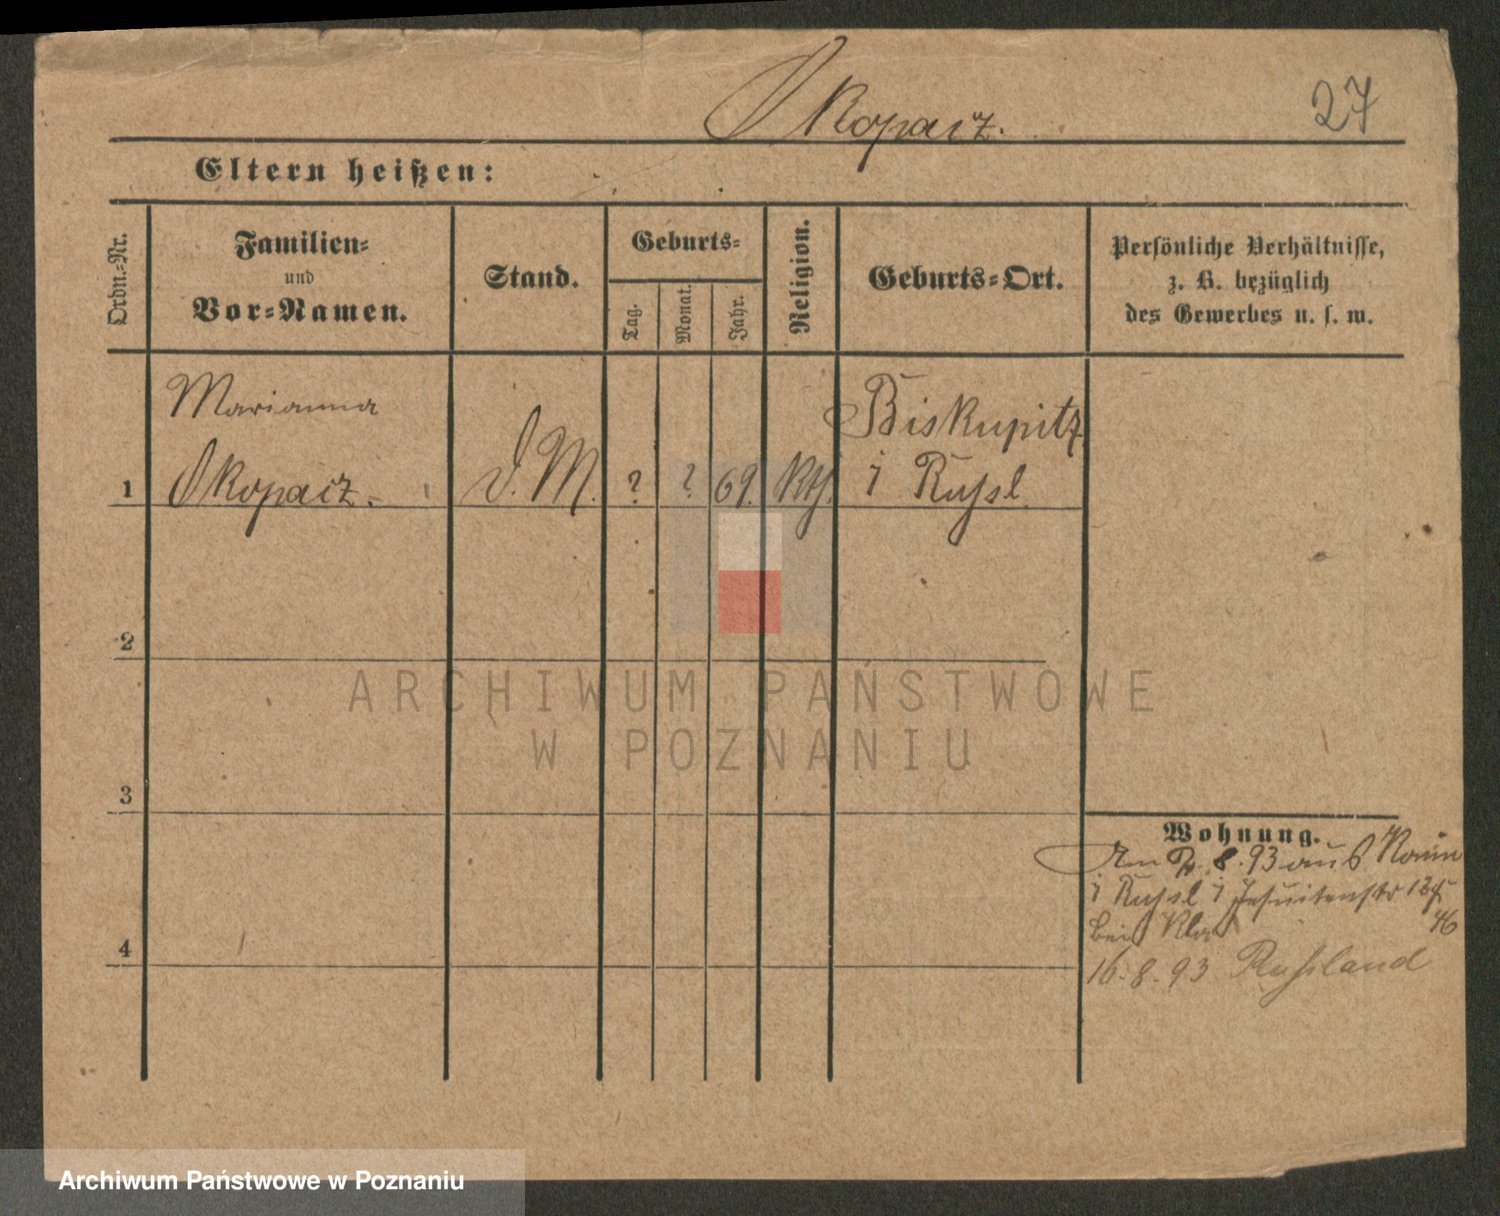 Skopacz.
27
Eltern heißen:
Ordn.-Nr.
Familien-
und
Vor-Namen.
Stand.
Geburts-
Tag.
Monat.
Jahr.
Religion.
Geburts-Ort.
Persönliche Verhältnisse,
z. B. bezüglich
des Gewerbes u. s. w.
Marianna
Biskupitz
1 Skopacz. D. M. ? ? 69. Kth. i Russl
2
ARCHIWUM PAŃSTWOWE
W POZNANIU
3
Wohnung.
Am 8. 93 aus
i Russl i Jesuitenstr 12
bei 46
4
16. 8. 93 Russland
Archiwum Państwowe w Poznaniu